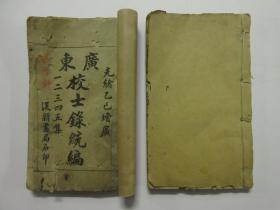 廣東
光緒乙巳增廣
校士錄統編
一二三四五集
書局石印